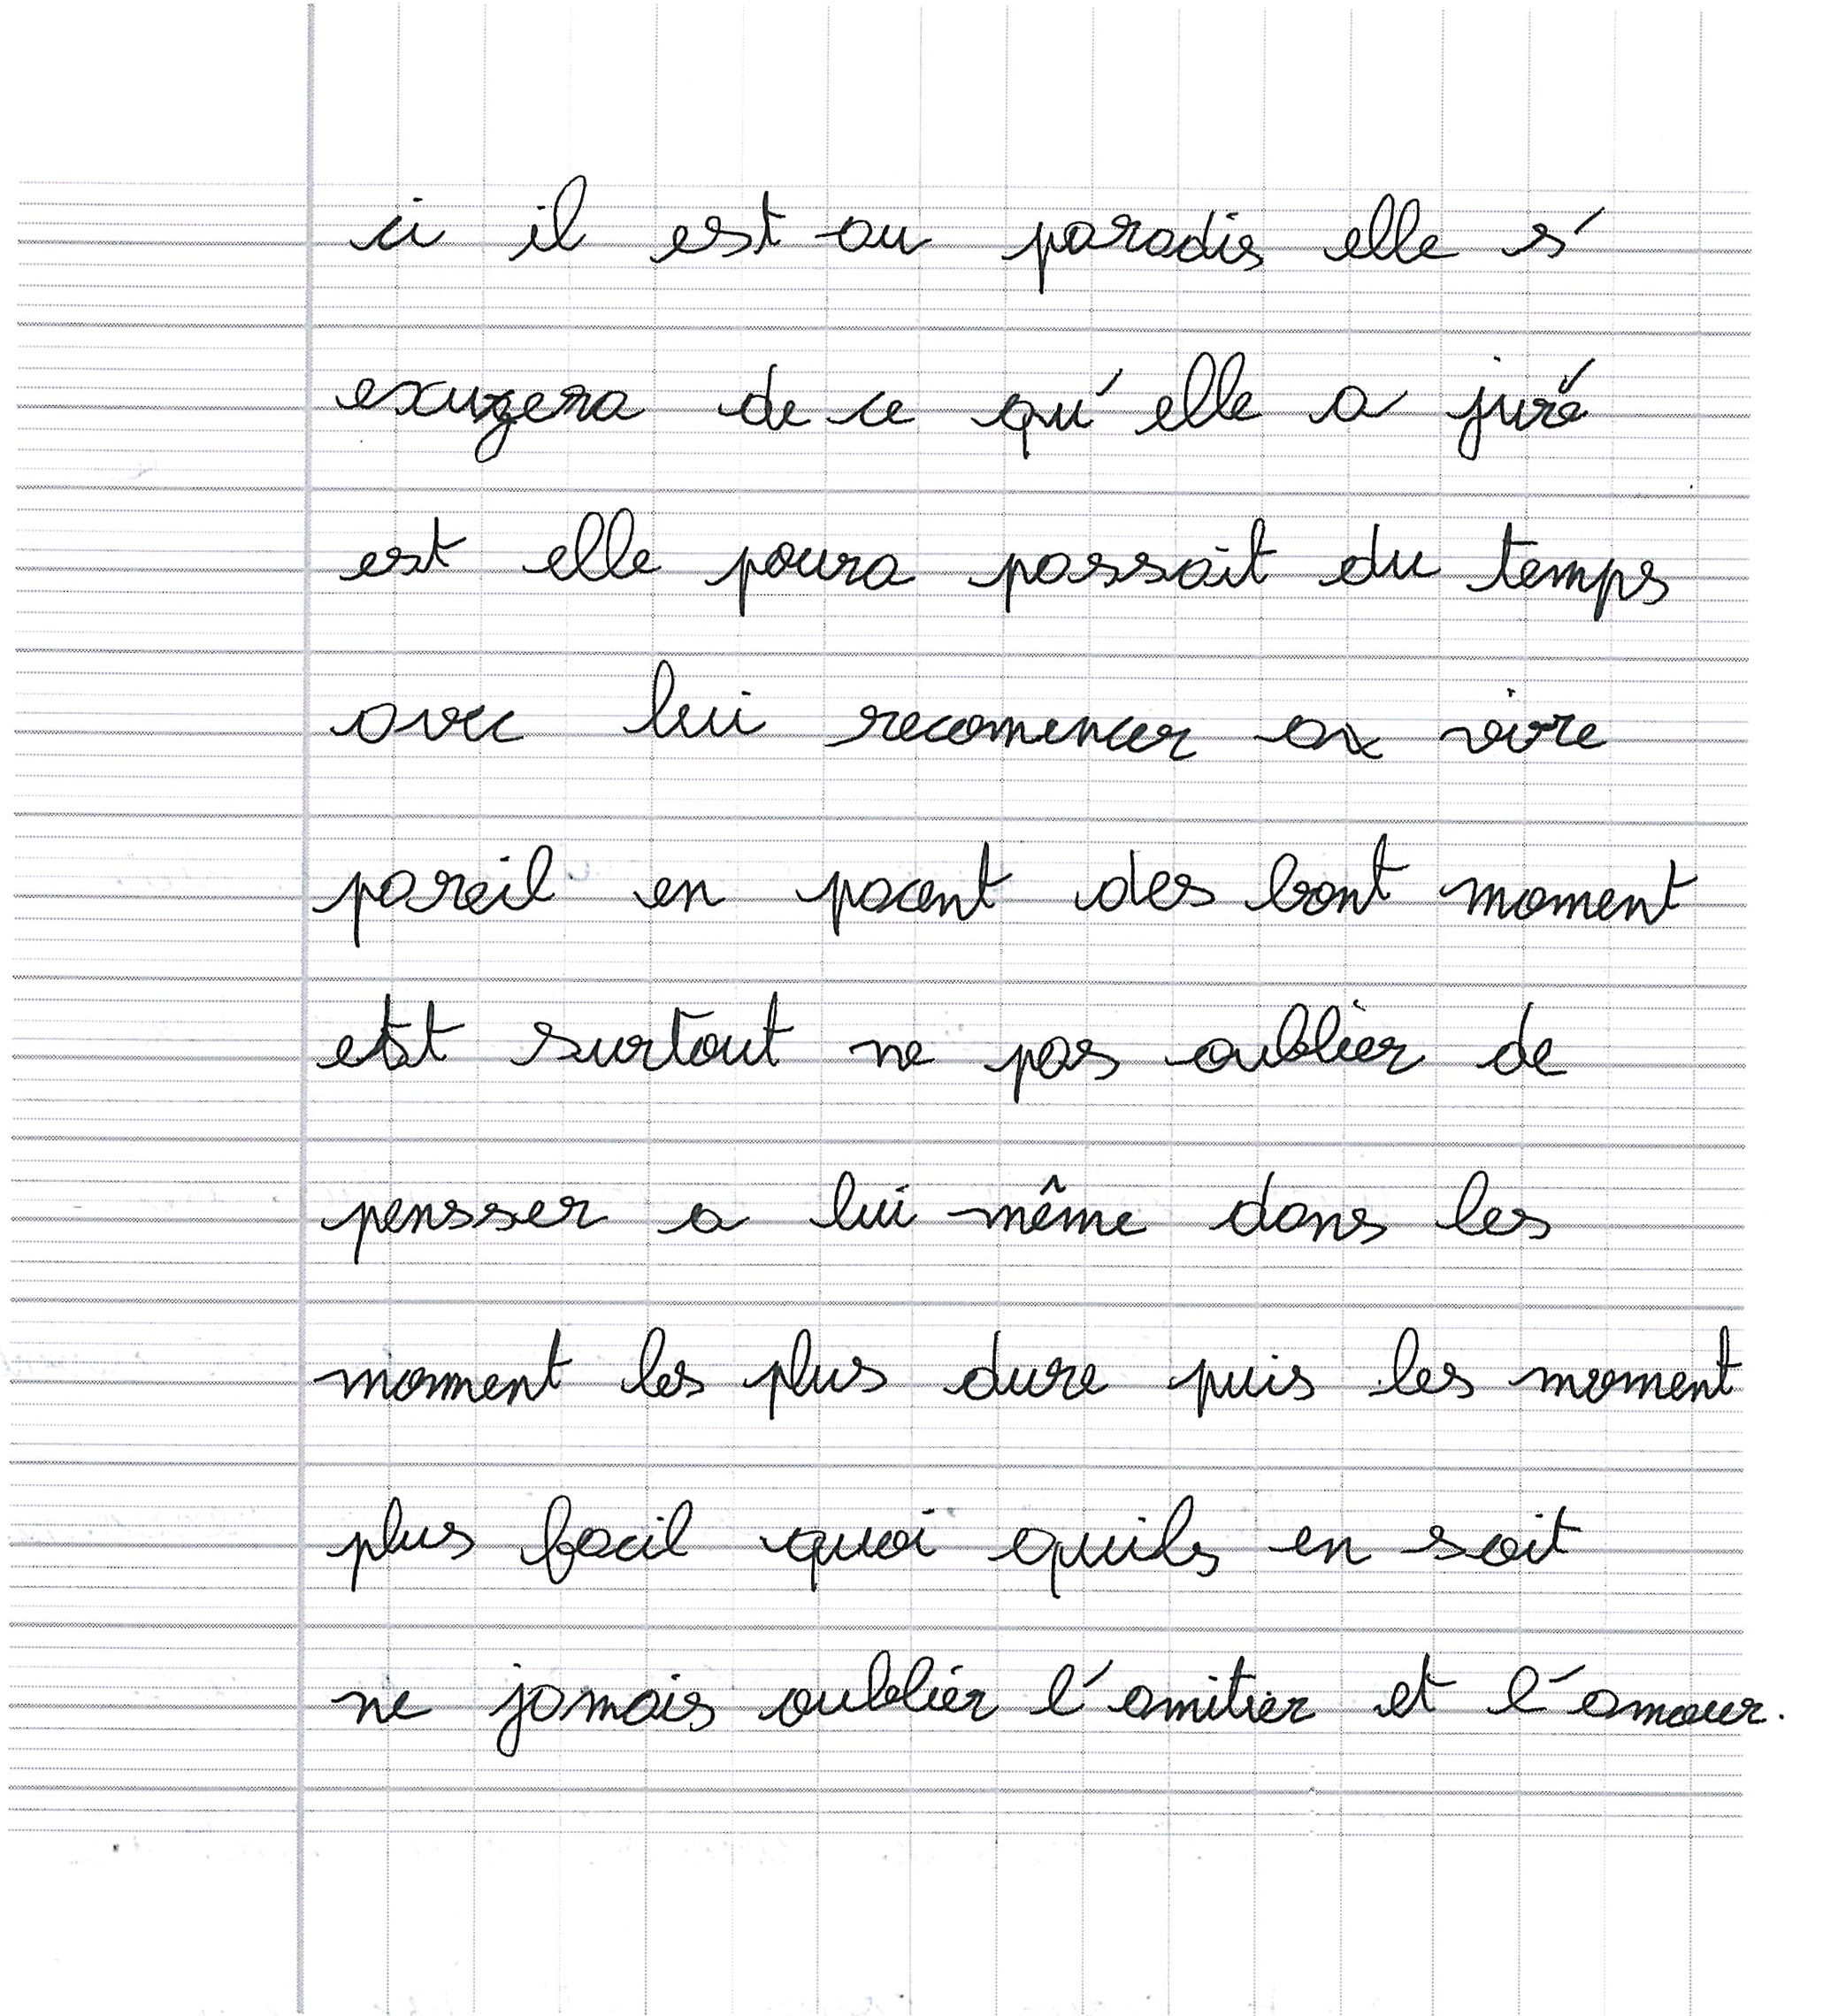 ci il est au paradis elle s'
exuzera de ce qu'elle a juré
est elle poura passait du temps
avec lui recomencer a vivre
pareil en pacent des bont moment
est surtout ne pas oublier de
pensser a lui même dans les
moment les plus dure puis les moment
plus facil quoi quils en soit
ne jamais oublier l'amitier et l'amour.